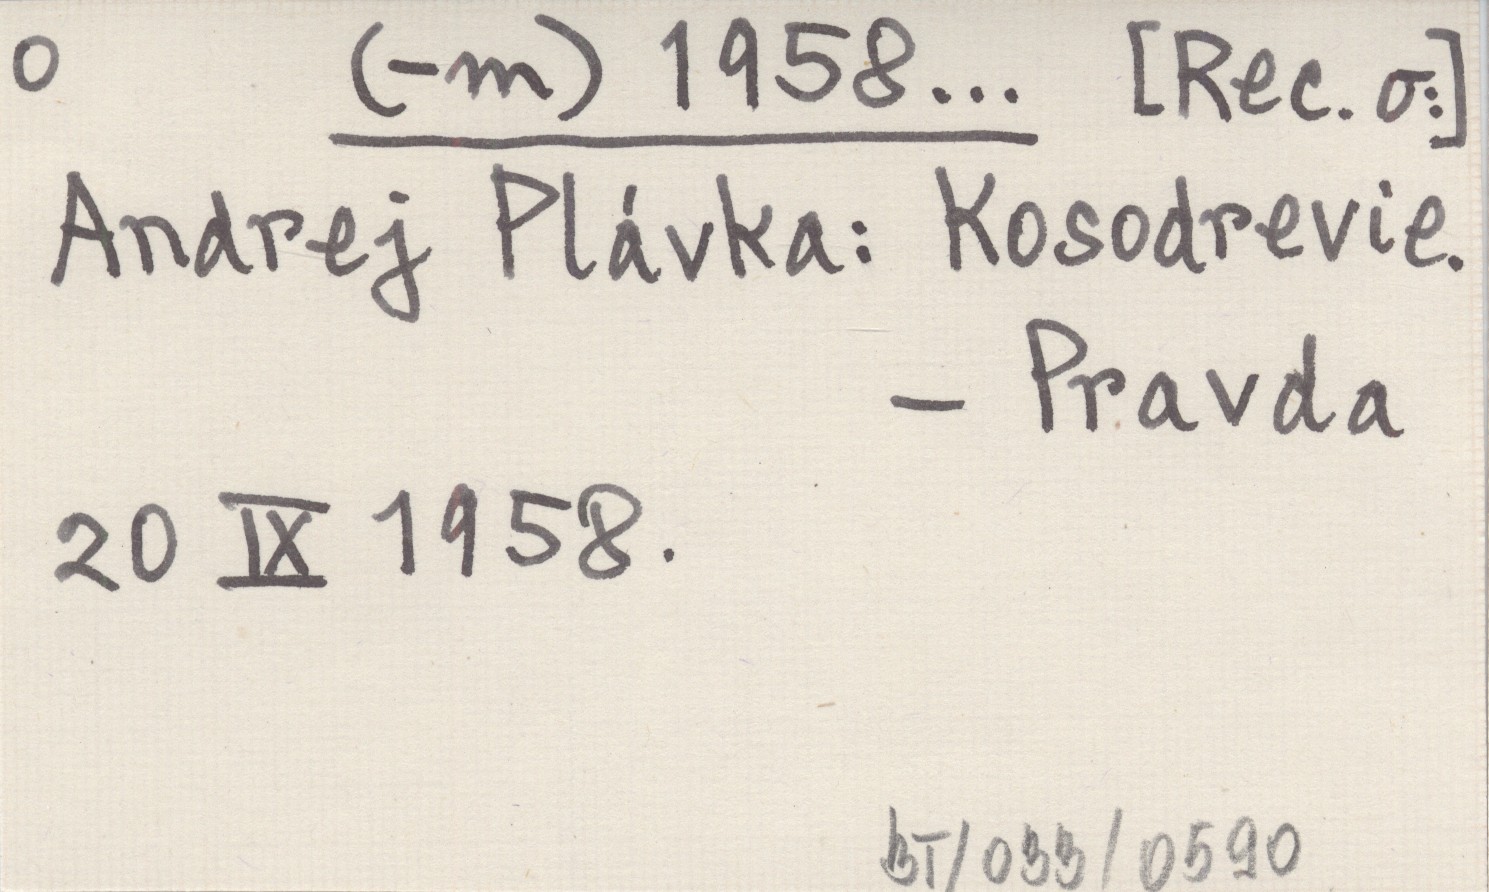 o (-m) 1958... [Rec. o:]
Andrej Plávka: Kosodrevie.
– Pravda
20 IX 1958.
BT/033/0590